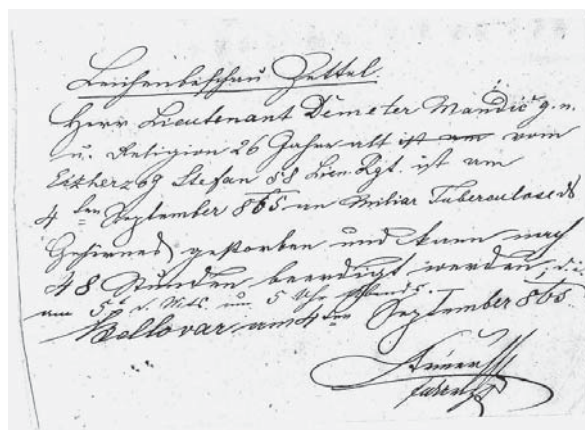 Leichenbeschau Zettel.
Herr Lieutenant Demeter Mandić g. n.
u. Religion 26 Jahre alt ist am vom
Erzherzog Stefan 58 Lin. Rgt. ist am
4ten September 865 an Miliar Tuberculose ds
Gehirnes gestorben und kann nach
48 Stunden beerdigt werden, d. i.
am 5t d. Mts. um 5 Uhr Abends.
Bellovar am 4ten September 865.